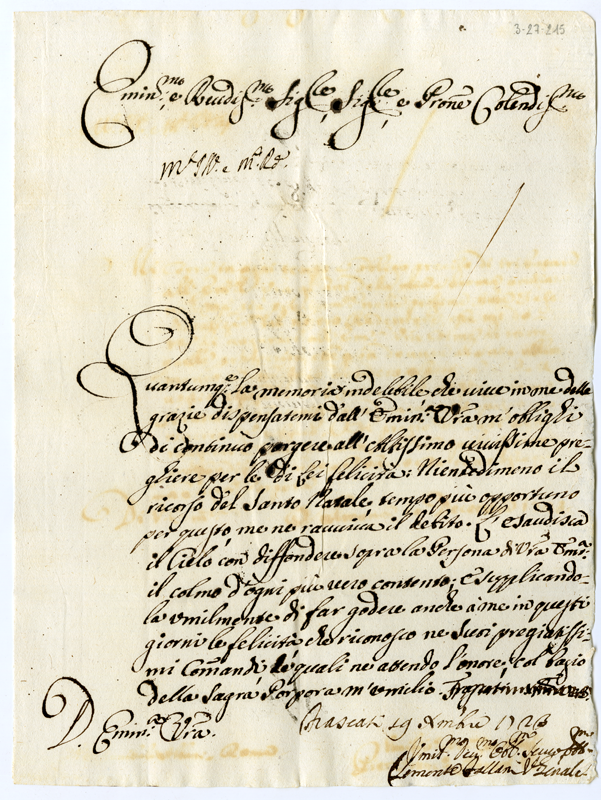 3-27-215
Emin.mo e Reudis.mo Sig.re Sig.re e Prone Colendis.mo
Quantumq.e la memoria indelebile che uiue in me delle
grazie dispensatemi dall' Emin.a Vra m' oblighi
di continuo porgere all' Altissimo uiuissime pre-
ghiere per le di lei felicità: Nientedimeno il
ricorso del Santo Natale, tempo più opportuno
per questo, me ne rauuiua il debito. L' esaudisca
il Cielo con diffondere sopra la Persona di Vra Emin.a
il colmo d' ogni più uero contento; E supplicando-
la umilmente di far godere anche à me in questi
giorni le felicità che riconosco ne Suoi pregiatissi-
mi Comandi de' quali ne attendo l' onore; col bacio
della Sagra Porpora m' umilio.
D. Emin.a Vra.
Frascati 19 Xmbre
Umil.mo Deu.mo
Clemente